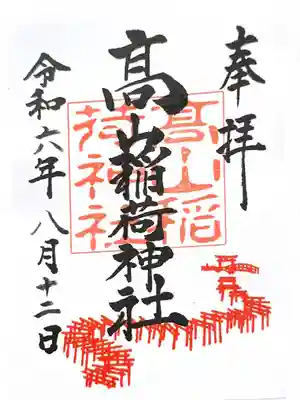 奉拝
髙山稲荷神社
髙山稲荷神社
令和六年八月十二日